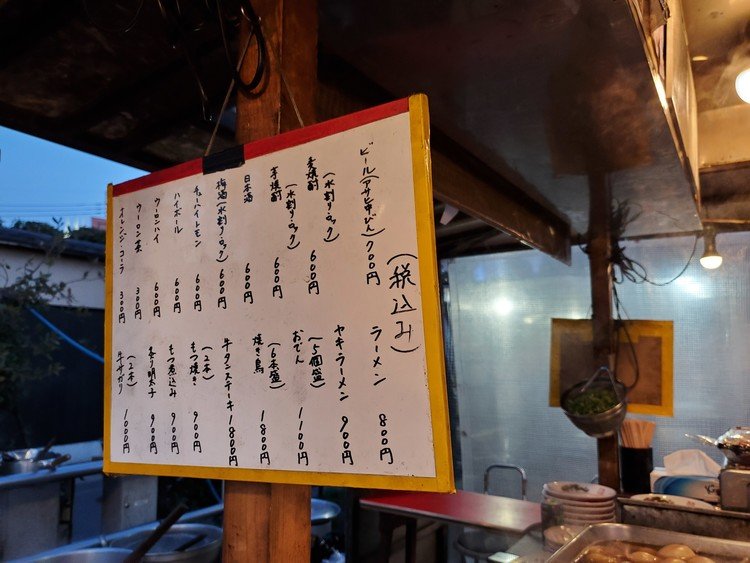 (税込み)
ビール(アサヒ中びん) 700円
麦焼酎(水割り・ロック) 600円
芋焼酎(水割り・ロック) 600円
日本酒 600円
梅酒(水割り・ロック) 600円
チューハイレモン 600円
ハイボール 600円
ウーロンハイ 600円
ウーロン茶 300円
オレンジ・コーラ 300円
ラーメン 800円
ヤキラーメン 900円
おでん(5個盛) 1100円
焼き鳥(6本盛) 1800円
牛タンステーキ 1800円
もつ焼き(2本) 900円
もつ煮込み 900円
炙り明太子 900円
牛サガリ(2本) 1000円